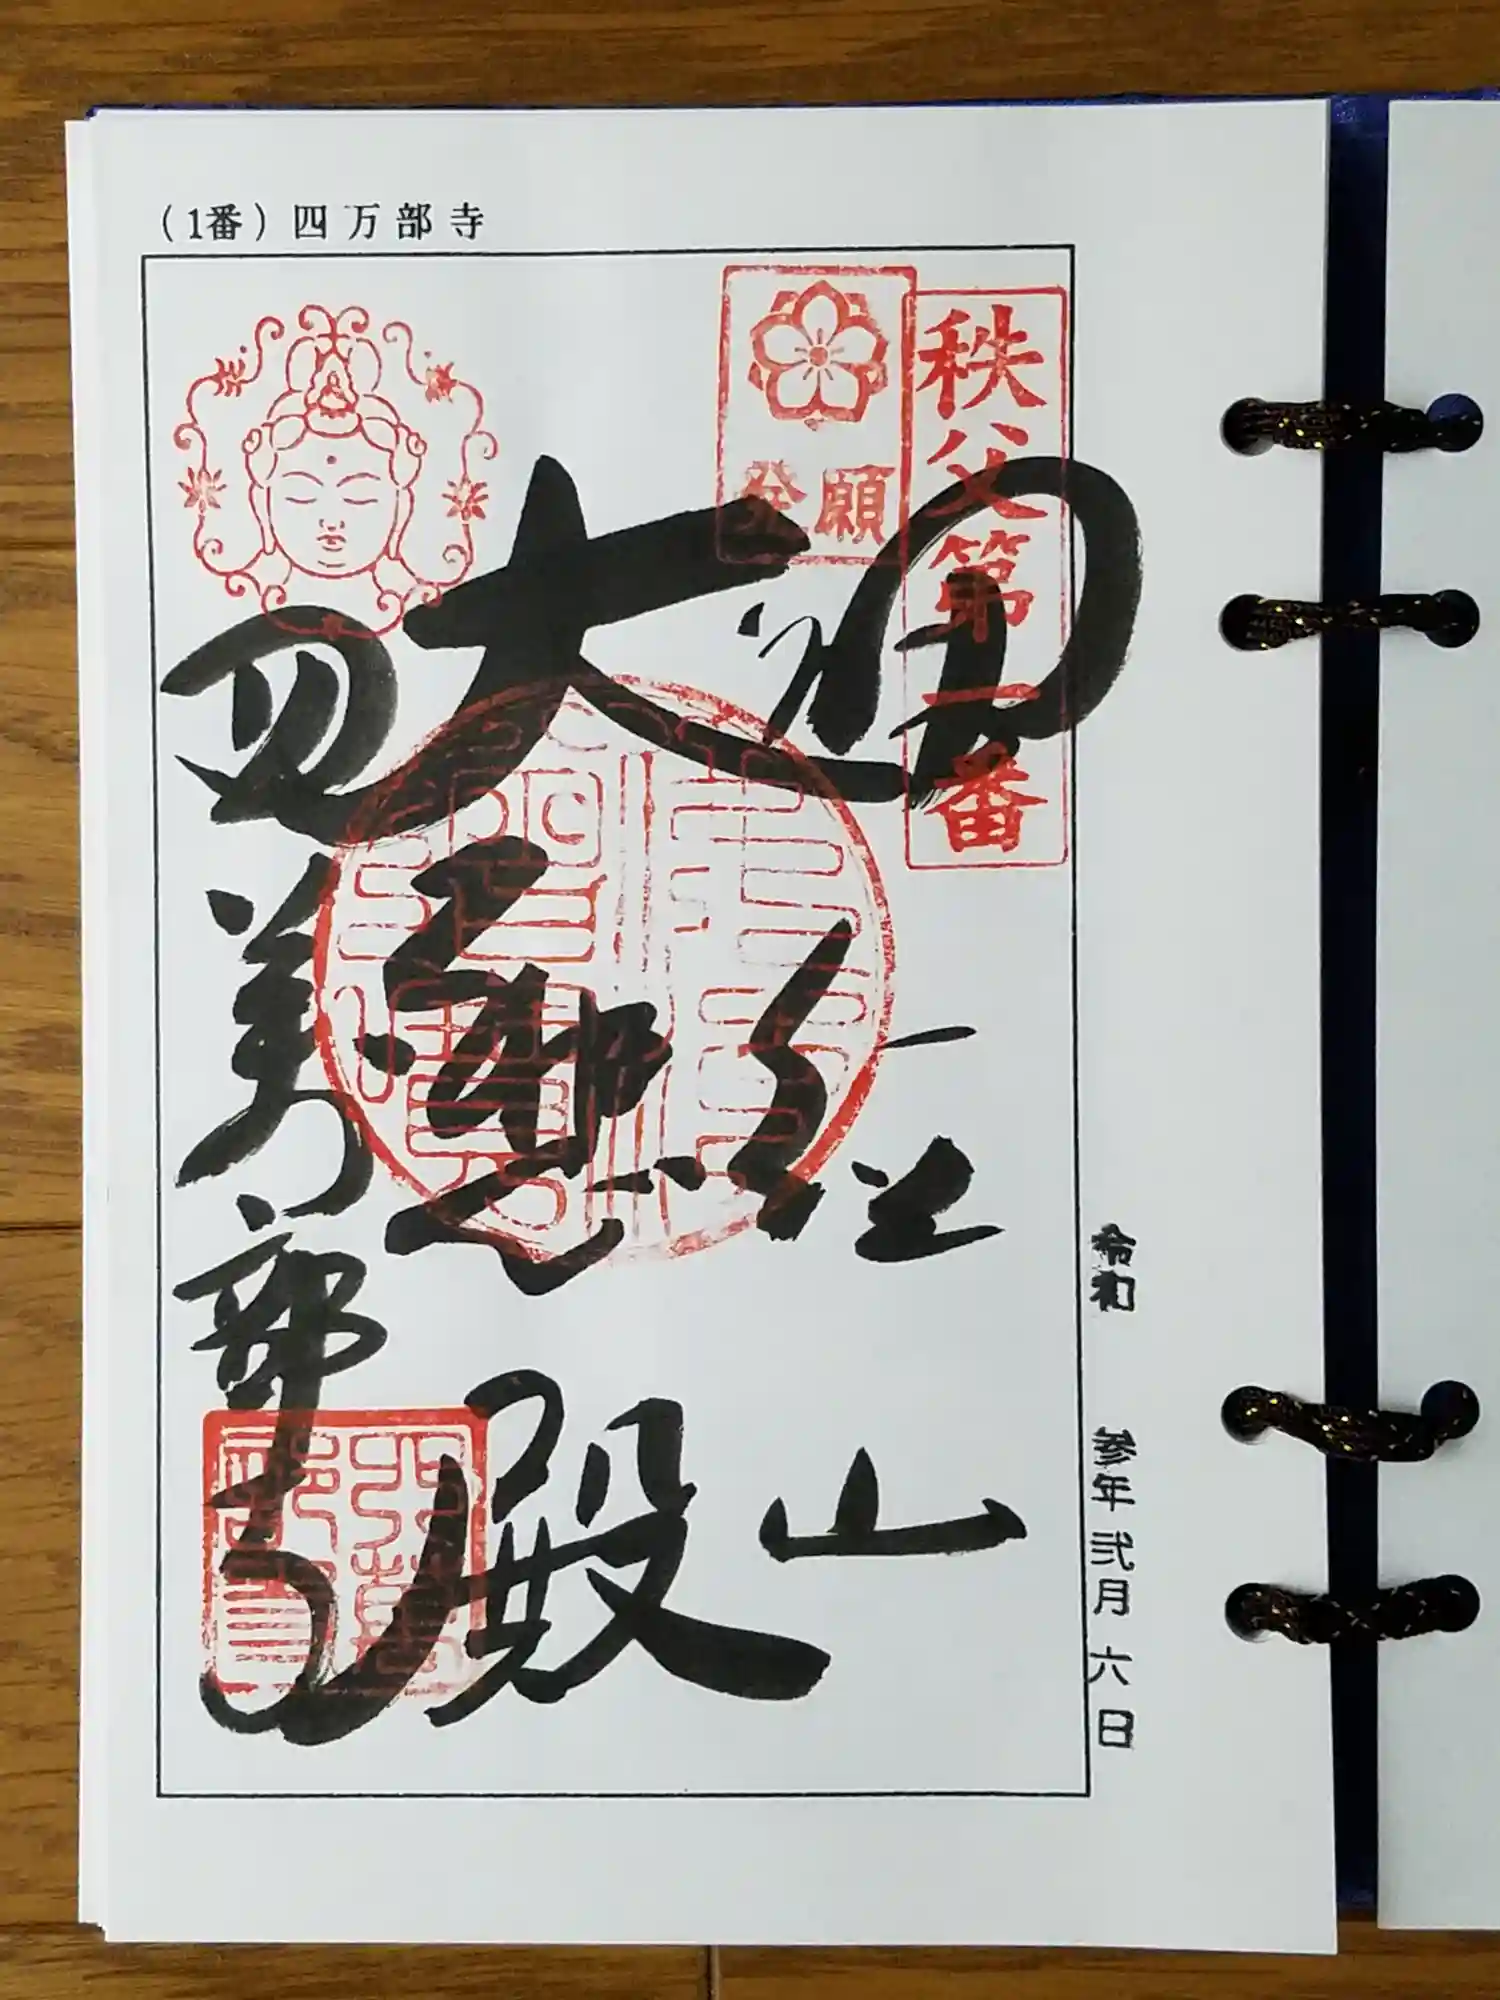 （1番）四万部寺
秩父第一番
発願
誦経山
大慈殿
四萬部寺
令和 参年弐月六日